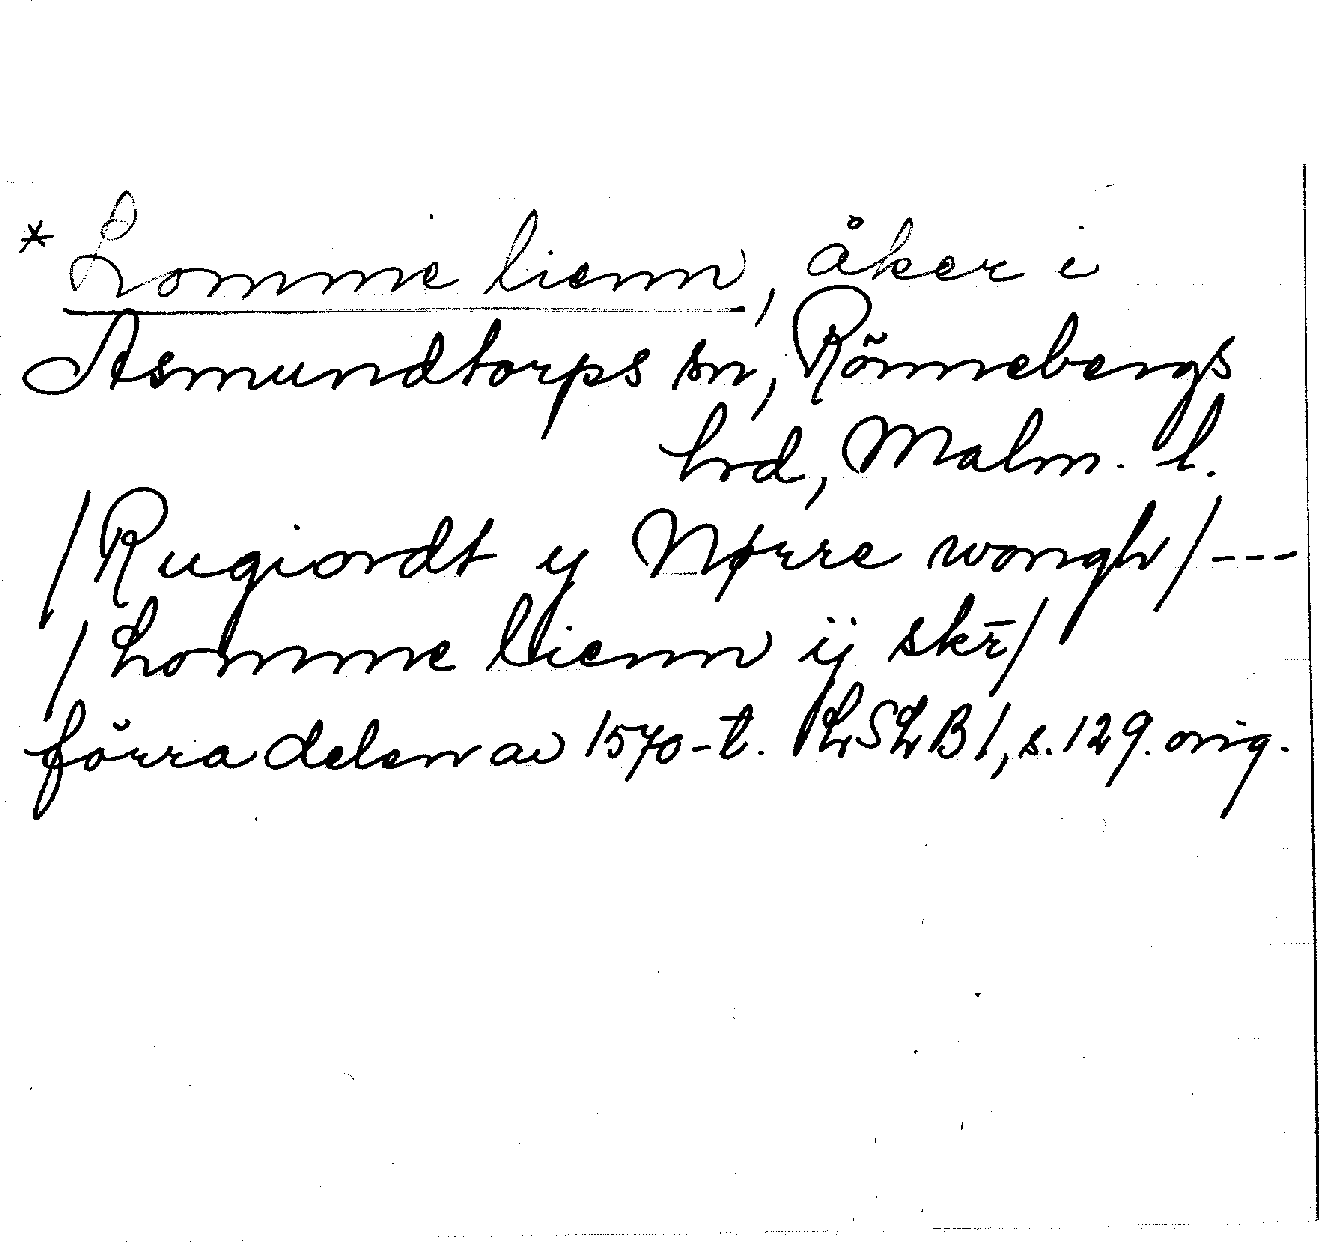 * Lomme lienn, åker i
Asmundtorps sn, Rönnebergs
hrd, Malm. l.
/Rugiordt y Nørre wongh/---
/Lomme lienn ij skr̄/
förra delen av 1570-t. LSLB 1, s. 129. orig.